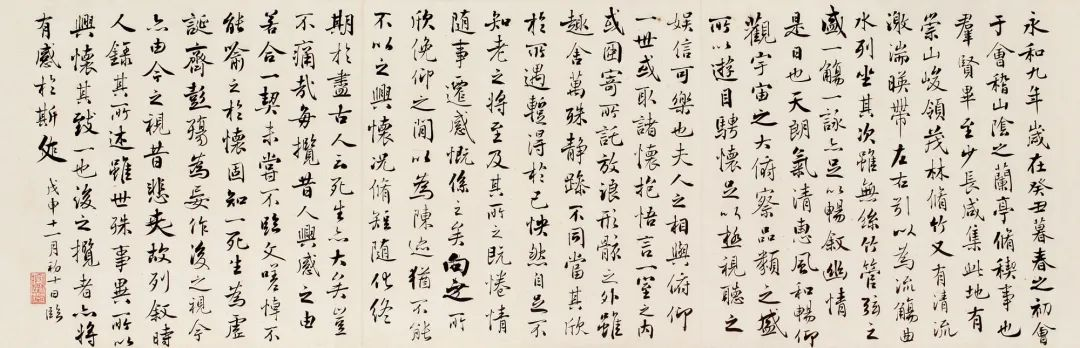 永和九年歲在癸丑暮春之初會
于會稽山陰之蘭亭脩稧事也
羣賢畢至少長咸集此地有
崇山峻領茂林脩竹又有清流
激湍暎帶左右引以為流觴曲
水列坐其次雖無絲竹管弦之
盛一觴一詠亦足以暢敘幽情
是日也天朗氣清惠風和暢仰
觀宇宙之大俯察品類之盛
所以遊目騁懷足以極視聽之
娛信可樂也夫人之相與俯仰
一世或取諸懷抱悟言一室之內
或因寄所託放浪形骸之外雖
趣舍萬殊静躁不同當其欣
於所遇蹔得於己怏然自足不
知老之將至及其所之既惓情
隨事遷感慨係之矣向之所
欣俛仰之閒以為陳迹猶不能
不以之興懷況脩短隨化終
期於盡古人云死生亦大矣豈
不痛哉每攬昔人興感之由
若合一契未嘗不臨文嗟悼不
能喻之於懷固知一死生為虛
誕齊彭殤為妄作後之視今
亦由今之視昔悲夫故列敘時
人錄其所述雖世殊事異所以
興懷其致一也後之攬者亦將
有感於斯作
戊申十一月初十日臨